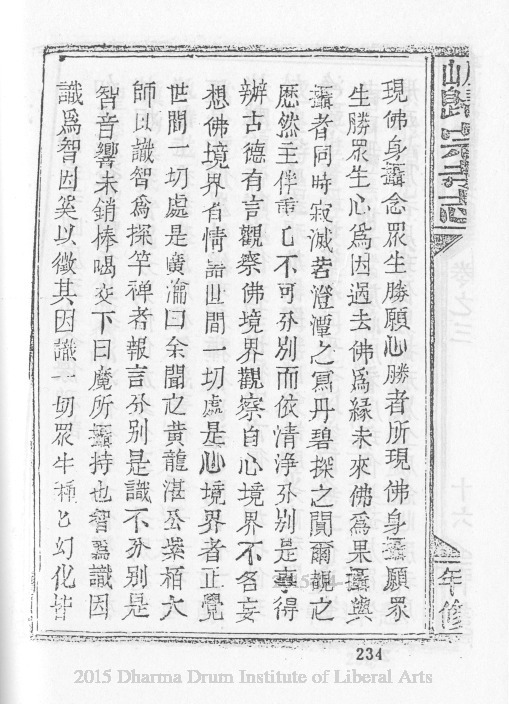 現佛身攝念眾生勝願心勝者所現佛身攝願眾
生勝眾生心為因過去佛為緣未來佛為果攝與
攝者同時寂滅若澄潭之寫丹碧探之闃爾觀之
歷然主伴重乙不可分別而依清淨分別是辜得
辦古德有言觀察佛境界觀察自心境界不名妄
想佛境界有情諸世間一切處是心境界者正覺
世間一切處是廣瀹曰余聞之黃龍湛公紫栢大
師以識智為探竿禪者報言分別是識不分別是
智音響未銷棒喝交下曰魔所攝持也智為識因
識為智因奚以徵其因識一切眾生種乙幻化皆
山
卷之三
十六
年修
234
2015 Dharma Drum Institute of Liberal Arts